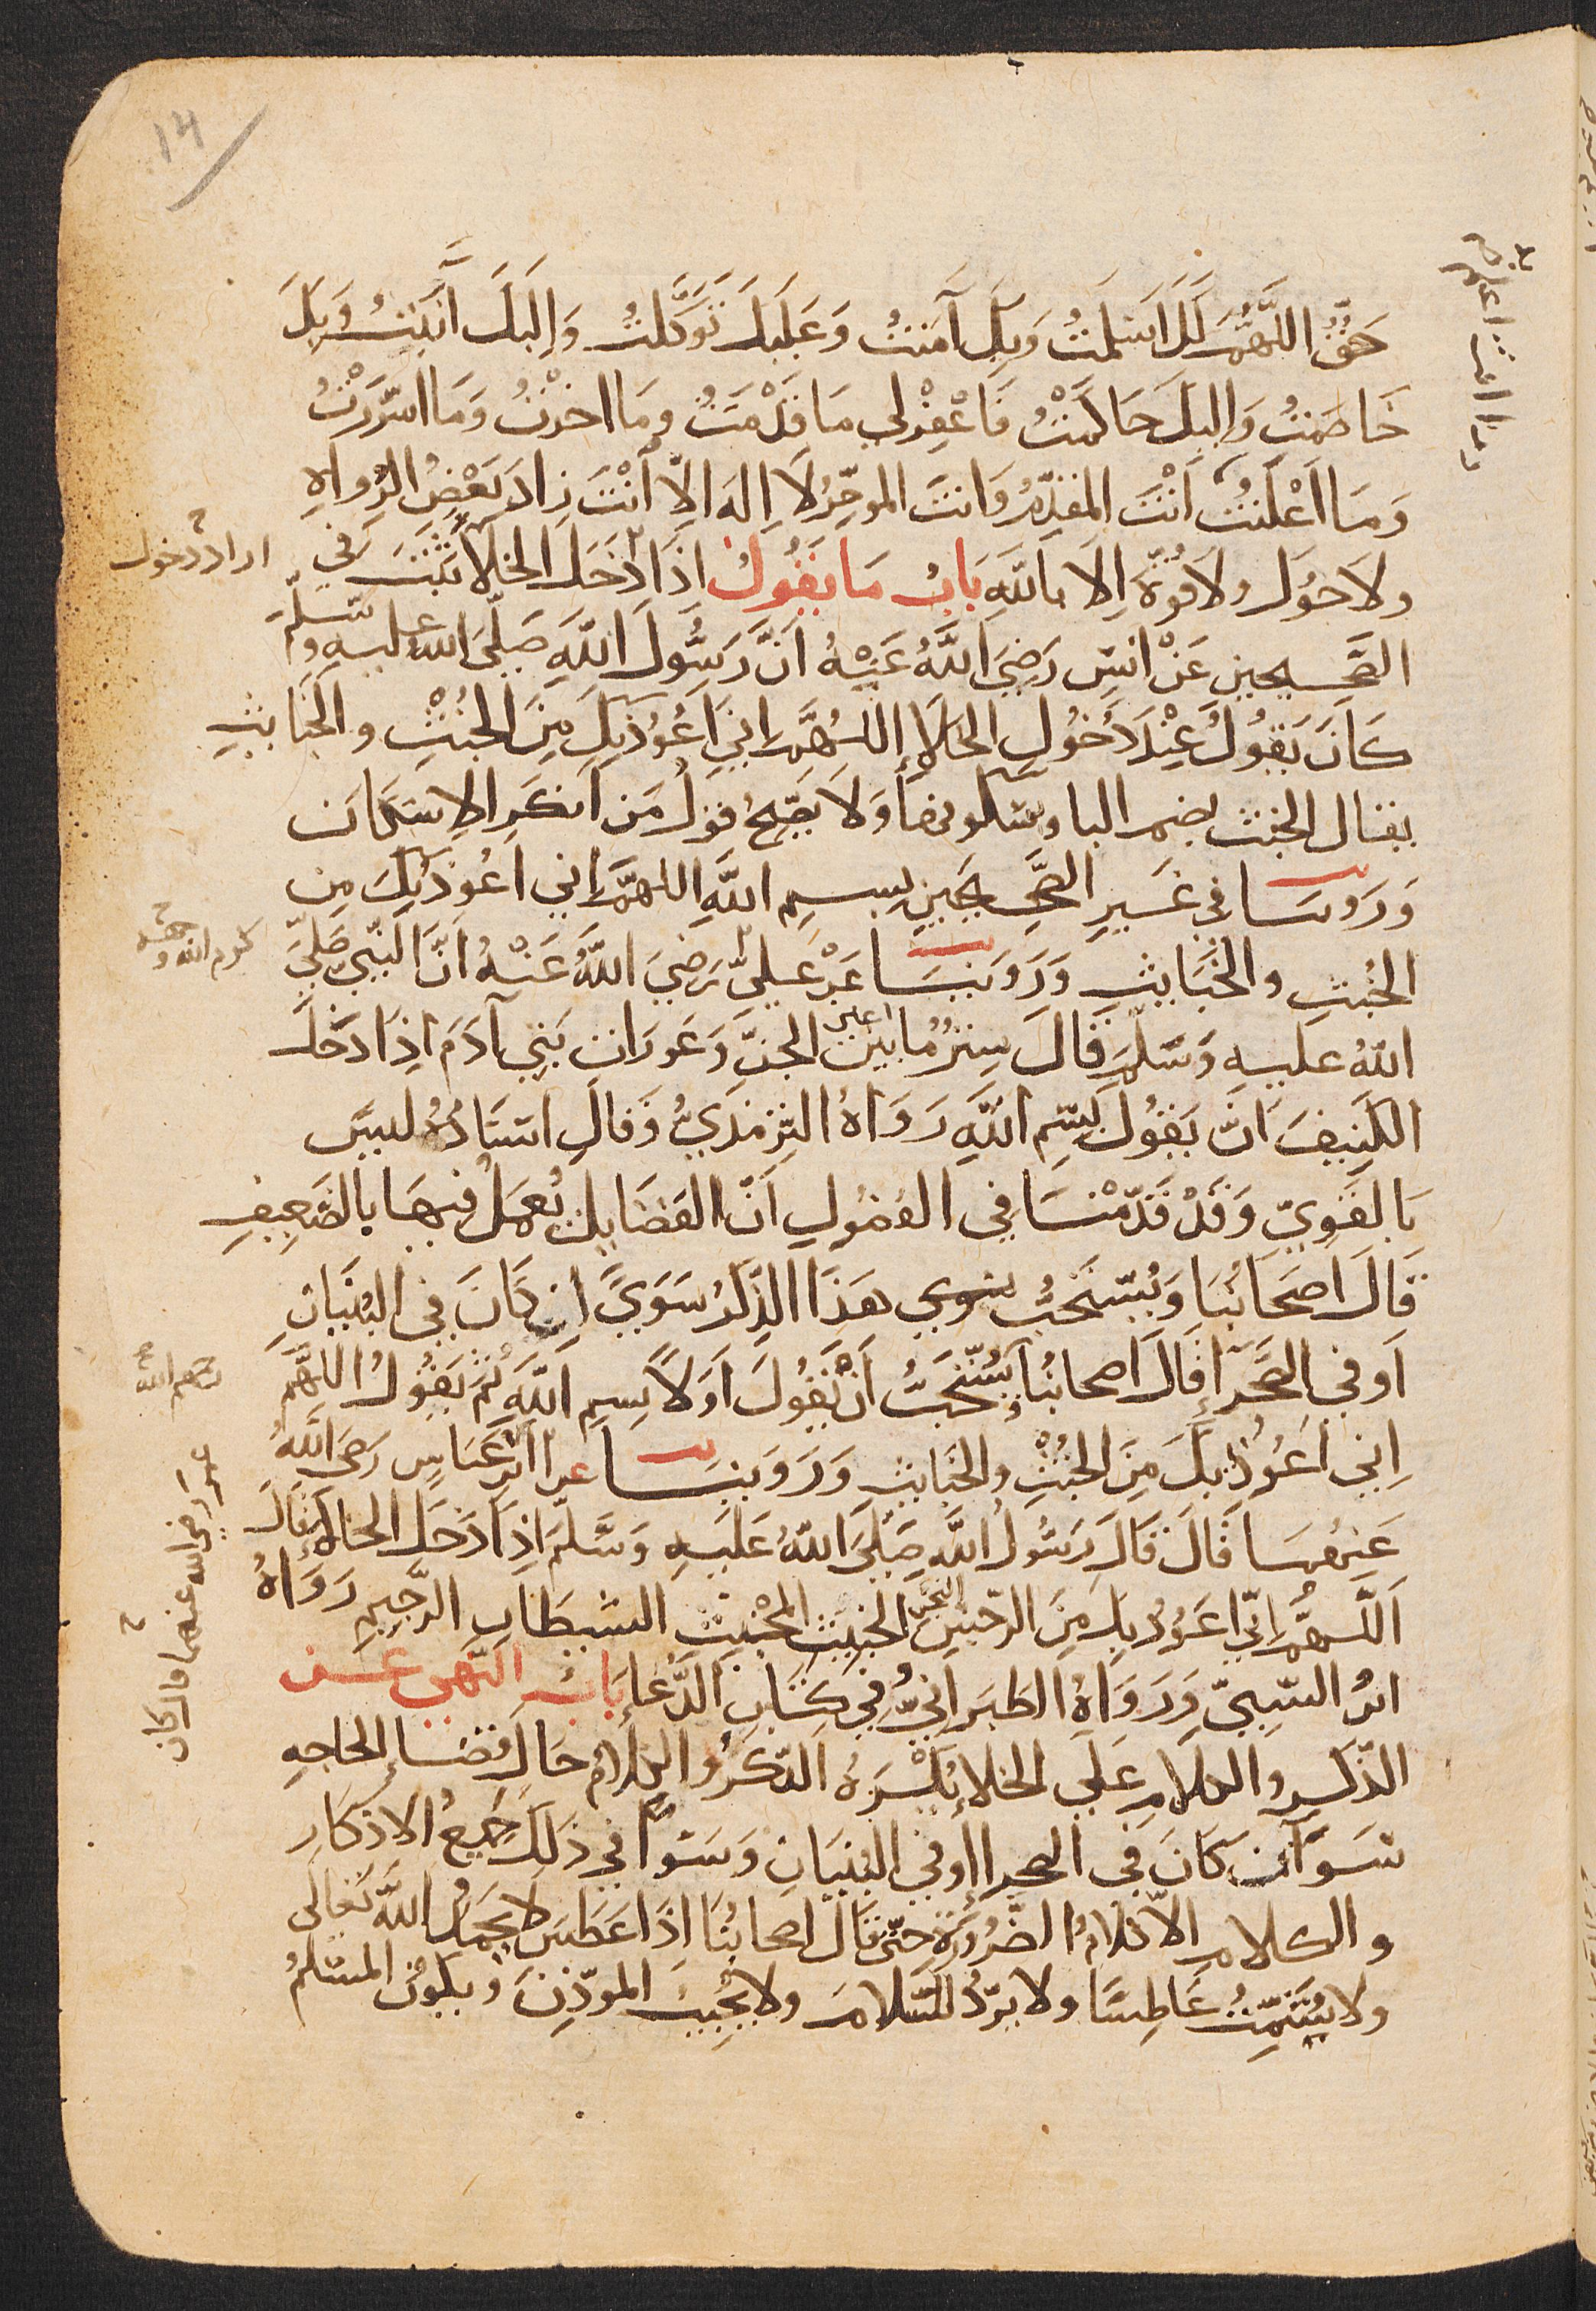 ١٤
حَقُّ اللَّهُمَّ لَكَ اَسْلَمْتُ وَبِكَ آمَنْتُ وَعَلَيْكَ تَوَكَّلْتُ وَاِلَيْكَ اَنَبْتُ وَبِكَ
خَاصَمْتُ وَاِلَيْكَ حَاكَمْتُ فَاغْفِرْ لِي مَا قَدَّمْتُ وَمَا اخَّرْتُ وَمَا اسْرَرْتُ
وَمَا اَعْلَنْتُ اَنْتَ المُقَدِّمُ وَانتَ الموخِّرُ لَا اِلَهَ الِاّ اَنْتَ زادَ بَعْضُ الرُّواةِ
ولَا حَوْلَ ولَا قُوَّةَ اِلَا بِاللَّهِ بَابُ مَا يَقُولُ اذَا دَخَلَ الخلَا ثَبَتَ فِي
اراد دخول
الصَّحِيحين عَنْ انسٍ رَضِيَ اللَّهُ عَنْهُ اَنَّ رَسُولَ اللَّهِ صَلَّى الله عليهِ وسَلَّمَ
كَانَ يَقُولُ عِنْدَ دُخُولِ الخَلَاءِ اللَّهُمَّ اِنِّي اَعُوُذ بِكَ مِنَ الخُبْثِ والخَبَائِثِ
يقال الخبث بضم البا وسكونها وَلَا يَصِحُّ قولُ مَن اَنكَر الاِسْكَان
وَرَوينَا في غَيرِ الصَّحِيحَينِ بِسمِ اللَّهِ اللهمَّ اني اعُوذ بِكَ مِن
الخُبثِ والخَبَايثِ وَرَوَينَا عَنْ عَلِيٍّ رَضِيَ اللَّهُ عَنْهُ اَنَّ النَّبِيَّ صَلَّيَ
كرم الله وجهه
اللهُ عليهِ وَسَلَّمَ قَالَ سِترُ مَا بين اعين الجنِّ وَعَورَات بَنِي آدَمَ اِذَا دَخَلَ
الكَنِيفَ اَنْ يَقُولَ بِسْمِ اللَّهِ رَوَاهُ التِّرْمذِيُّ وَقالَ اسْنَادُهُ ليسَ
بِالقَوِيّ وَقَدْ قَدَّمْنَا فِي الفُصُولِ اَنَّ الفَضَايِلَ يُعمَلُ فيهَا بالضَعِيفِ
قَالَ اصحَابُنَا وَيُسْتَحَبُّ هَذَا الذِّكرُ سَوَيً ان كَانَ فِي البُنيَانِ
اَو فِي الصَّحْرَاءِ قَالَ اَصحابُنا يُسْتَحَبُّ اَنْ يَقُولَ اوَلاً بِسمِ اللَّهِ ثُمَّ يَقُولُ اللَّهمَّ
رحمهم الله
اِنِي اَعُوُذ بِكَ مِنَ الخُبْثِ والخَبَايثِ وَرَوَينَا عن ابْن عَبَّاسٍ رَضيَ اللَّهُ
عَنْهُمَا قَالَ قَالَ رَسُولُ اللَّهِ صَلَّيَ اللهُ عَلَيهِ وَسَلَّمَ اِذَا دَخَلَ الخلاءَ قَالَ
عمر رضي الله عنهما قال كان
اللَّهُمَّ اِنِّي اعُوذُ بِكَ مِنَ الرّجْسِ النجس الخَبِيثِ المخْبِثِ الشيطَانِ الرَّجِيمِ رَوَاهُ
ابنُ السّنِيِّ وَرَوَاهُ الطَبَرانِيُّ فِي كِتَابِ الدُّعَاءِ بَابُ النَّهي عَن
الذّكرِ والكلامِ عَلَى الخلَاءِ يُكْرَهُ الذّكرُ والكلامُ حَالَ قضَاءِ الحاجهِ
سَوَاءٌ كَانَ فِي الصحراءِ اوفِي البُنيَانِ وَسَوَاً في ذَلِكَ جَمِيعُ الاذْكَارِ
والكلامِ الاّ كلامُ الضَّرُورَةِ حتَّى قَالَ اصحابُنَا اِذَا عَطَسَ لا يَحمَدُ اللَّهَ تَعَالَى
ولا يُشَمِّتُ عَاطِسًا ولا يَرُدُّ السَّلامَ ولا يُجِيبُ المؤذِّنَ ويكونُ المسَلِّمُ